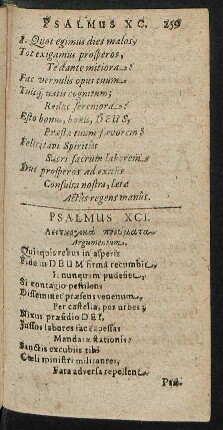 PSALMUS XC. 259
8. Quot egimus dies malos,
Tot exigamus prosperos,
Te dante mitiora.
Fac vernulis opus tuum
Tuisque natis cognitum;
Redde serenora.
Esto bonus, bonus, DEUS,
Præsta tuum favorem;
Felicitans Spiritus
Sacri sacrum laborem
Duc prosperos ad exitus
Consulta nostra, læta
Actus regens manus.
PSALMUS XCI.
Argumentum.
Quisquis rebus in asperis
Fide in DEUM firma recumbit,
Is nunquam pudefiet,
Si contagio pestilens
Disseminet præsens venenum,
Per castella, per urbes;
Nixus præsidio DEI,
Jussos labores fac capessas
Mandatæ stationis:
Sanctis excubiis tibi
Cœli ministri militantes,
Fata adversa repellent.